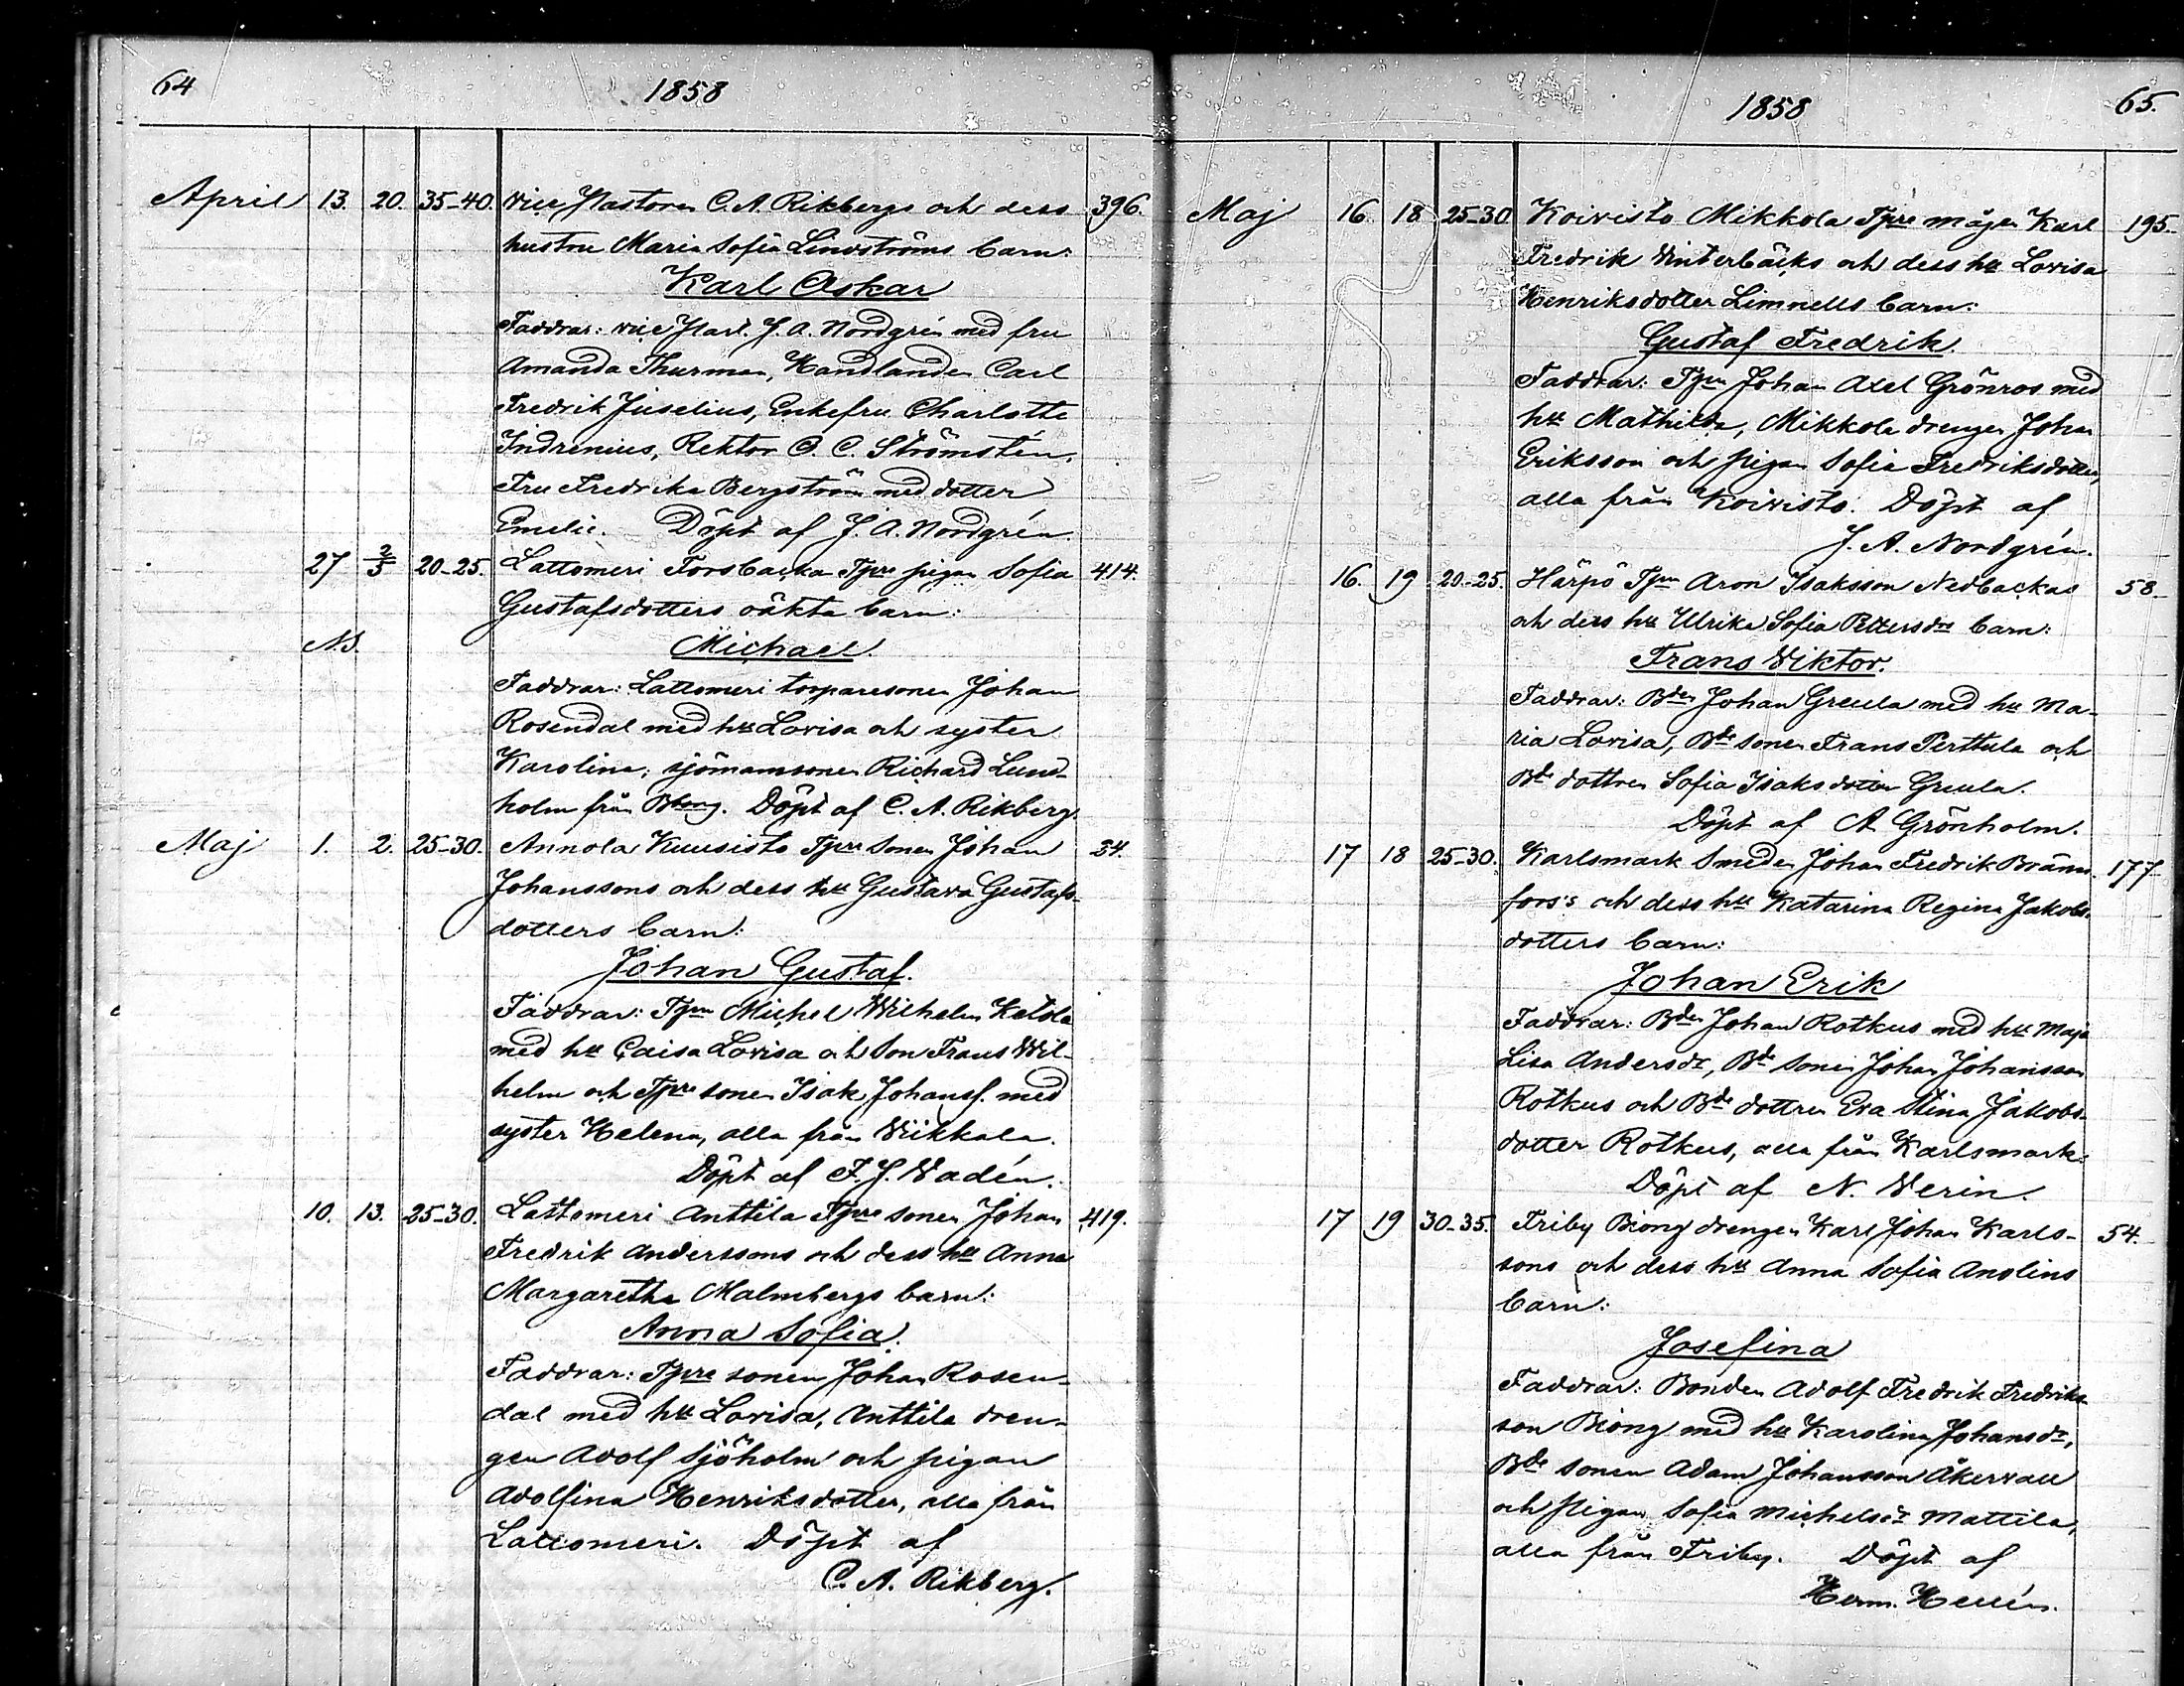 64
1858
April 13. 20. 35-40. Vice Pastoren C. A. Rikbergs och dess 396.
hustru Maria Sofia Lindströms barn:
Karl Oskar
Faddrar: vice Past. J. A. Nordgrén med fru
Amanda Thurman, Handlanden Carl
Fredrik Juselius, Enkefru Charlotte
Indrenius, Rektor C. C. Strömstén,
Fru Fredrika Bergström med dotter
Emelie. Döpt af J. A. Nordgrén.
27 2/5 20-25. Lattomeri Forsbacka Tpre pigan Sofia 414.
Gustafsdotters oäkta barn:
N.S. Michael.
Faddrar: Lattomeri torparesonen Johan
Rosendal med hu Lovisa och syster
Karolina, sjömansonen Richard Lund-
holm från Bborg. Döpt af C. A. Rikberg.
Maj 1. 2. 25-30. Annola Kuusisto Tpre sonen Johan 34.
Johanssons och dess hu Gustava Gustafs-
dotters barn:
Johan Gustaf.
Faddrar: Tpn Michel Wilhelm Ketola
med hu Caisa Lovisa och son Frans Wil-
helm och Tpre sonen Isak Johanss. med
syster Helena, alla från Wiikkala.
Döpt af F. J. Wadén.
10. 13. 25-30. Lattomeri Anttila Tpre sonen Johan 419.
Fredrik Anderssons och dess hu Anna
Margaretha Malmbergs barn:
Anna Sofia.
Faddrar: Tpre sonen Johan Rosen-
dal med hu Lovisa, Anttila dren-
gen Adolf Sjöholm och pigan
Adolfina Henriksdotter, alla från
Lattomeri. Döpt af
C. A. Rikberg.
1858
65.
Maj 16. 18 25-30 Koivisto Mikkola Tpre mågen Karl 195.
Fredrik Winterbäcks och dess hu Lovisa
Henriksdotter Limnells barn:
Gustaf Fredrik.
Faddrar: Tpn Johan Axel Grönros med
hu Mathilda, Mikkola drengen Johan
Eriksson och pigan Sofia Fredriksdotter,
alla från Koivisto. Döpt af
J. A. Nordgrén.
16. 19 20-25. Härpö Tpn Aron Isaksson Nedbackas 58.
och dess hu Ulrika Sofia Pettersdrs barn:
Frans Wiktor.
Faddrar: Bden Johan Greula med hu Ma-
ria Lovisa, Bde sonen Frans Perttula och
Bde dottren Sofia Isaksdotter Greula.
Döpt af A Grönholm.
17 18 25-30. Karlsmark Smeden Johan Fredrik Bränn- 177
fors's och dess hu Katarina Regina Jakobs-
dotters barn:
Johan Erik
Faddrar: Bden Johan Rotkus med hu Maja
Lisa Andersdr, Bde sonen Johan Johansson
Rotkus och Bde dottren Eva Stina Jakobs-
dotter Rotkus, alla från Karlsmark.
Döpt af N. Werin.
17 19 30-35. Friby Biong drengen Karl Johan Karls- 54.
sons och dess hu Anna Sofia Anolins
barn:
Josefina
Faddrar: Bonden Adolf Fredrik Fredriks-
son Biong med hu Karolina Johansdr,
Bde sonen Adam Johansson Åkervall
och pigan Sofia Michelsdr Mattila,
alla från Friby. Döpt af
Herm. Hellén.